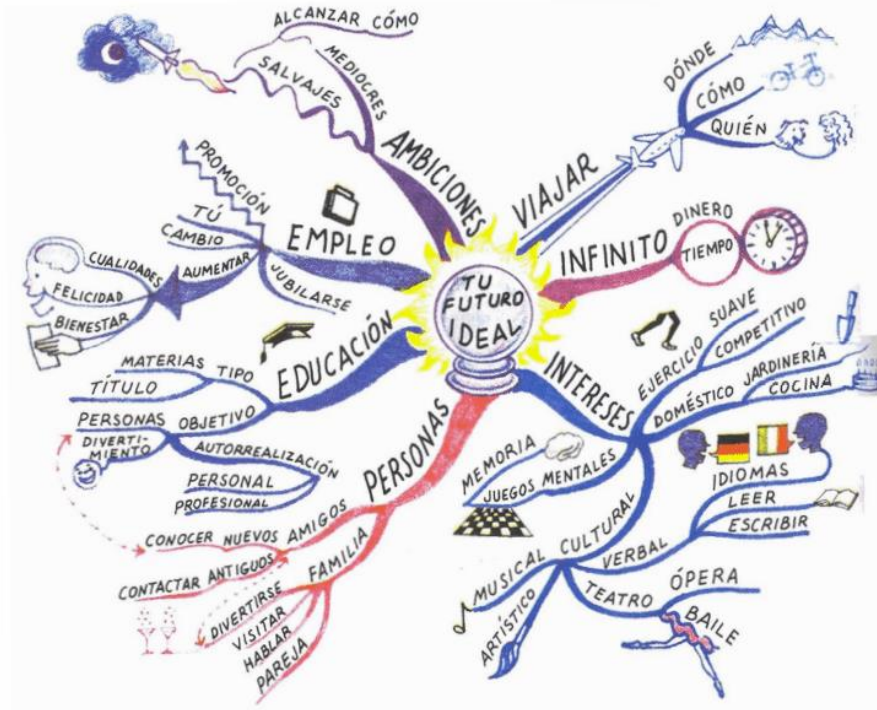 TU
FUTURO
IDEAL
AMBICIONES
MEDIOCRES
ALCANZAR CÓMO
SALVAJES
VIAJAR
DÓNDE
CÓMO
QUIÉN
INFINITO
DINERO
TIEMPO
INTERESES
EJERCICIO
SUAVE
COMPETITIVO
DOMÉSTICO
JARDINERÍA
COCINA
JUEGOS MENTALES
MEMORIA
CULTURAL
VERBAL
IDIOMAS
LEER
ESCRIBIR
TEATRO
ÓPERA
BAILE
MUSICAL
ARTÍSTICO
PERSONAS
AMIGOS
CONOCER NUEVOS
CONTACTAR ANTIGUOS
FAMILIA
DIVERTIRSE
VISITAR
HABLAR
PAREJA
EDUCACIÓN
TIPO
MATERIAS
TÍTULO
OBJETIVO
PERSONAS
DIVERTI-
MIENTO
AUTORREALIZACIÓN
PERSONAL
PROFESIONAL
EMPLEO
PROMOCIÓN
TÚ
CAMBIO
AUMENTAR
CUALIDADES
FELICIDAD
BIENESTAR
JUBILARSE